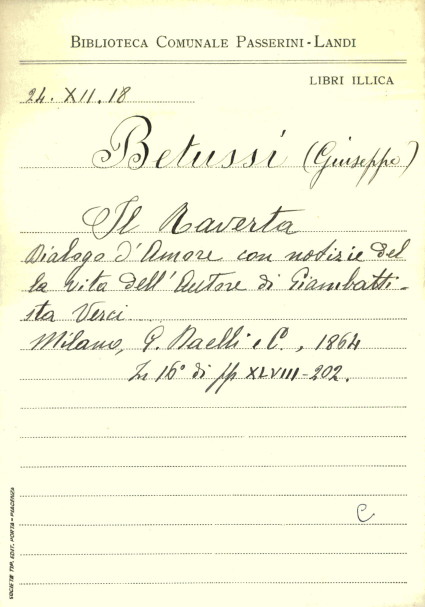 BIBLIOTECA COMUNALE PASSERINI-LANDI
LIBRI ILLICA
24. XII. 18
Betussi (Giuseppe)
Il Raverta
Dialogo d'Amore con notizie del
la vita dell'Autore di Giambatti-
sta Verci
Milano, G. Daelli e C., 1864
In 16° di pp XLVIII-202.
C
SOCIETÀ TIP. EDIT. PORTA - PIACENZA